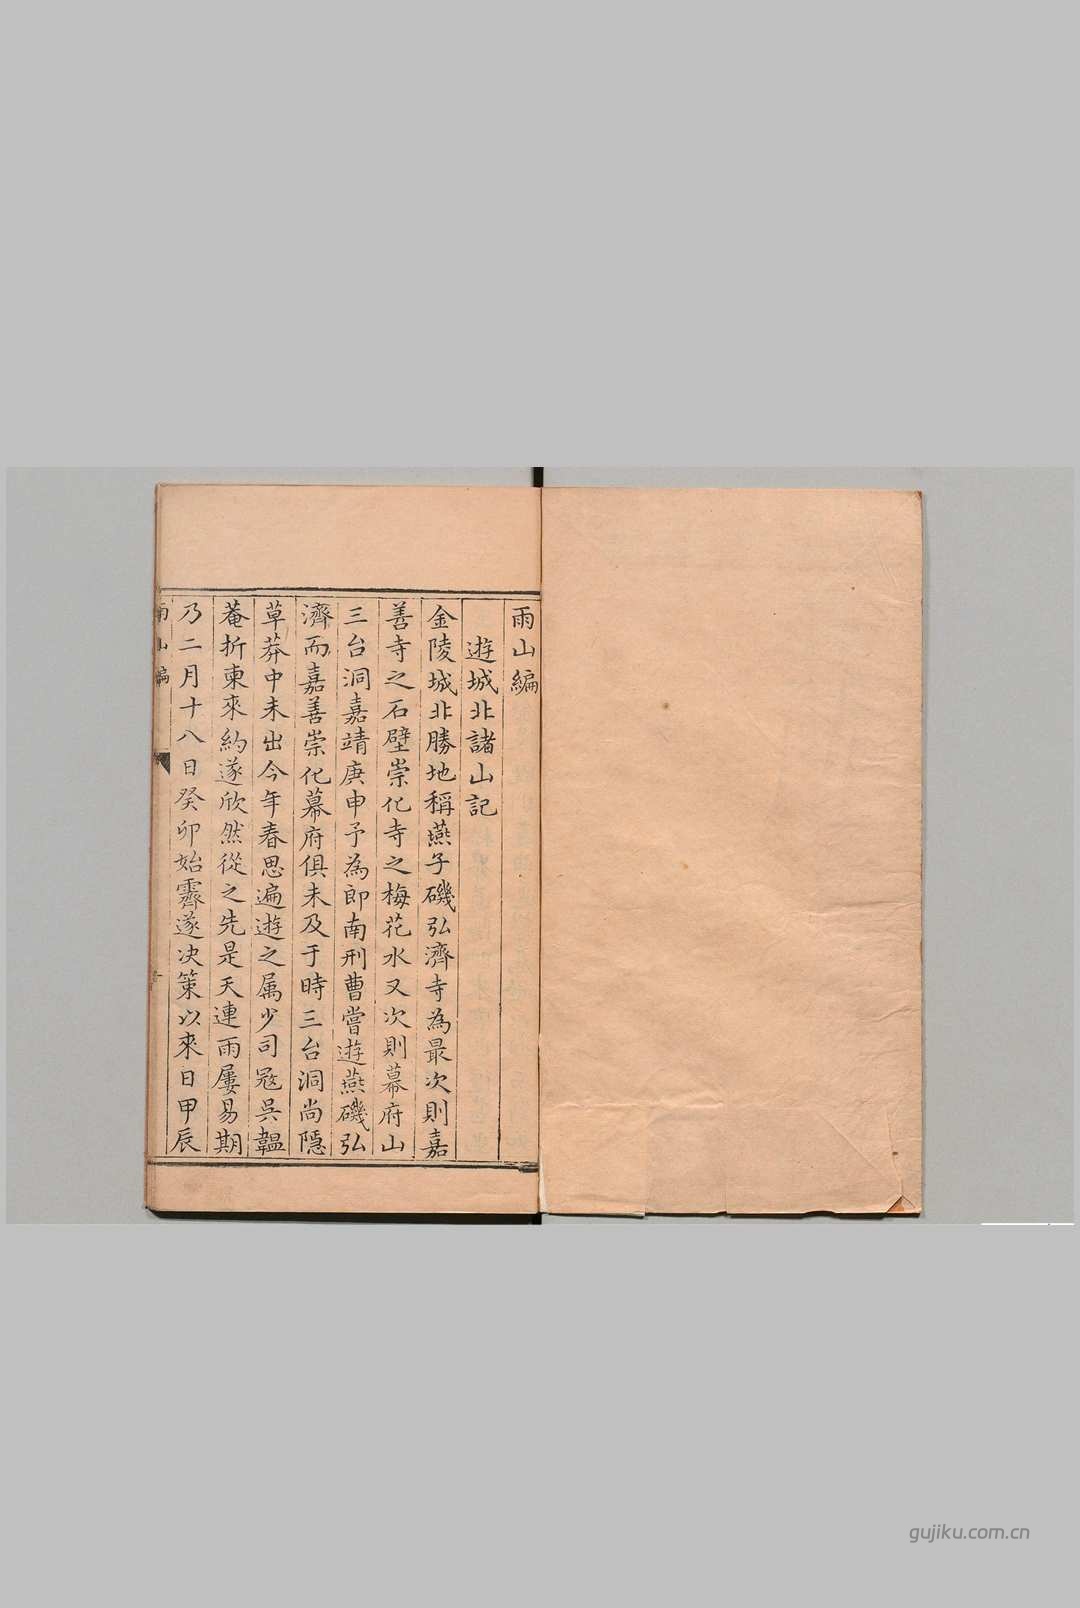 雨山編
遊城北諸山記
金陵城北勝地稱燕子磯弘濟寺為最次則嘉
善寺之石壁崇化寺之梅花水又次則幕府山
三台洞嘉靖庚申予為郎南刑曹嘗遊燕磯弘
濟而嘉善崇化幕府俱未及于時三台洞尚隱
草莽中未出今年春思遍遊之属少司寇吳韞
菴折柬來約遂欣然從之先是天連雨屢易期
乃二月十八日癸卯始霽遂決策以來日甲辰
雨山編
gujiku.com.cn